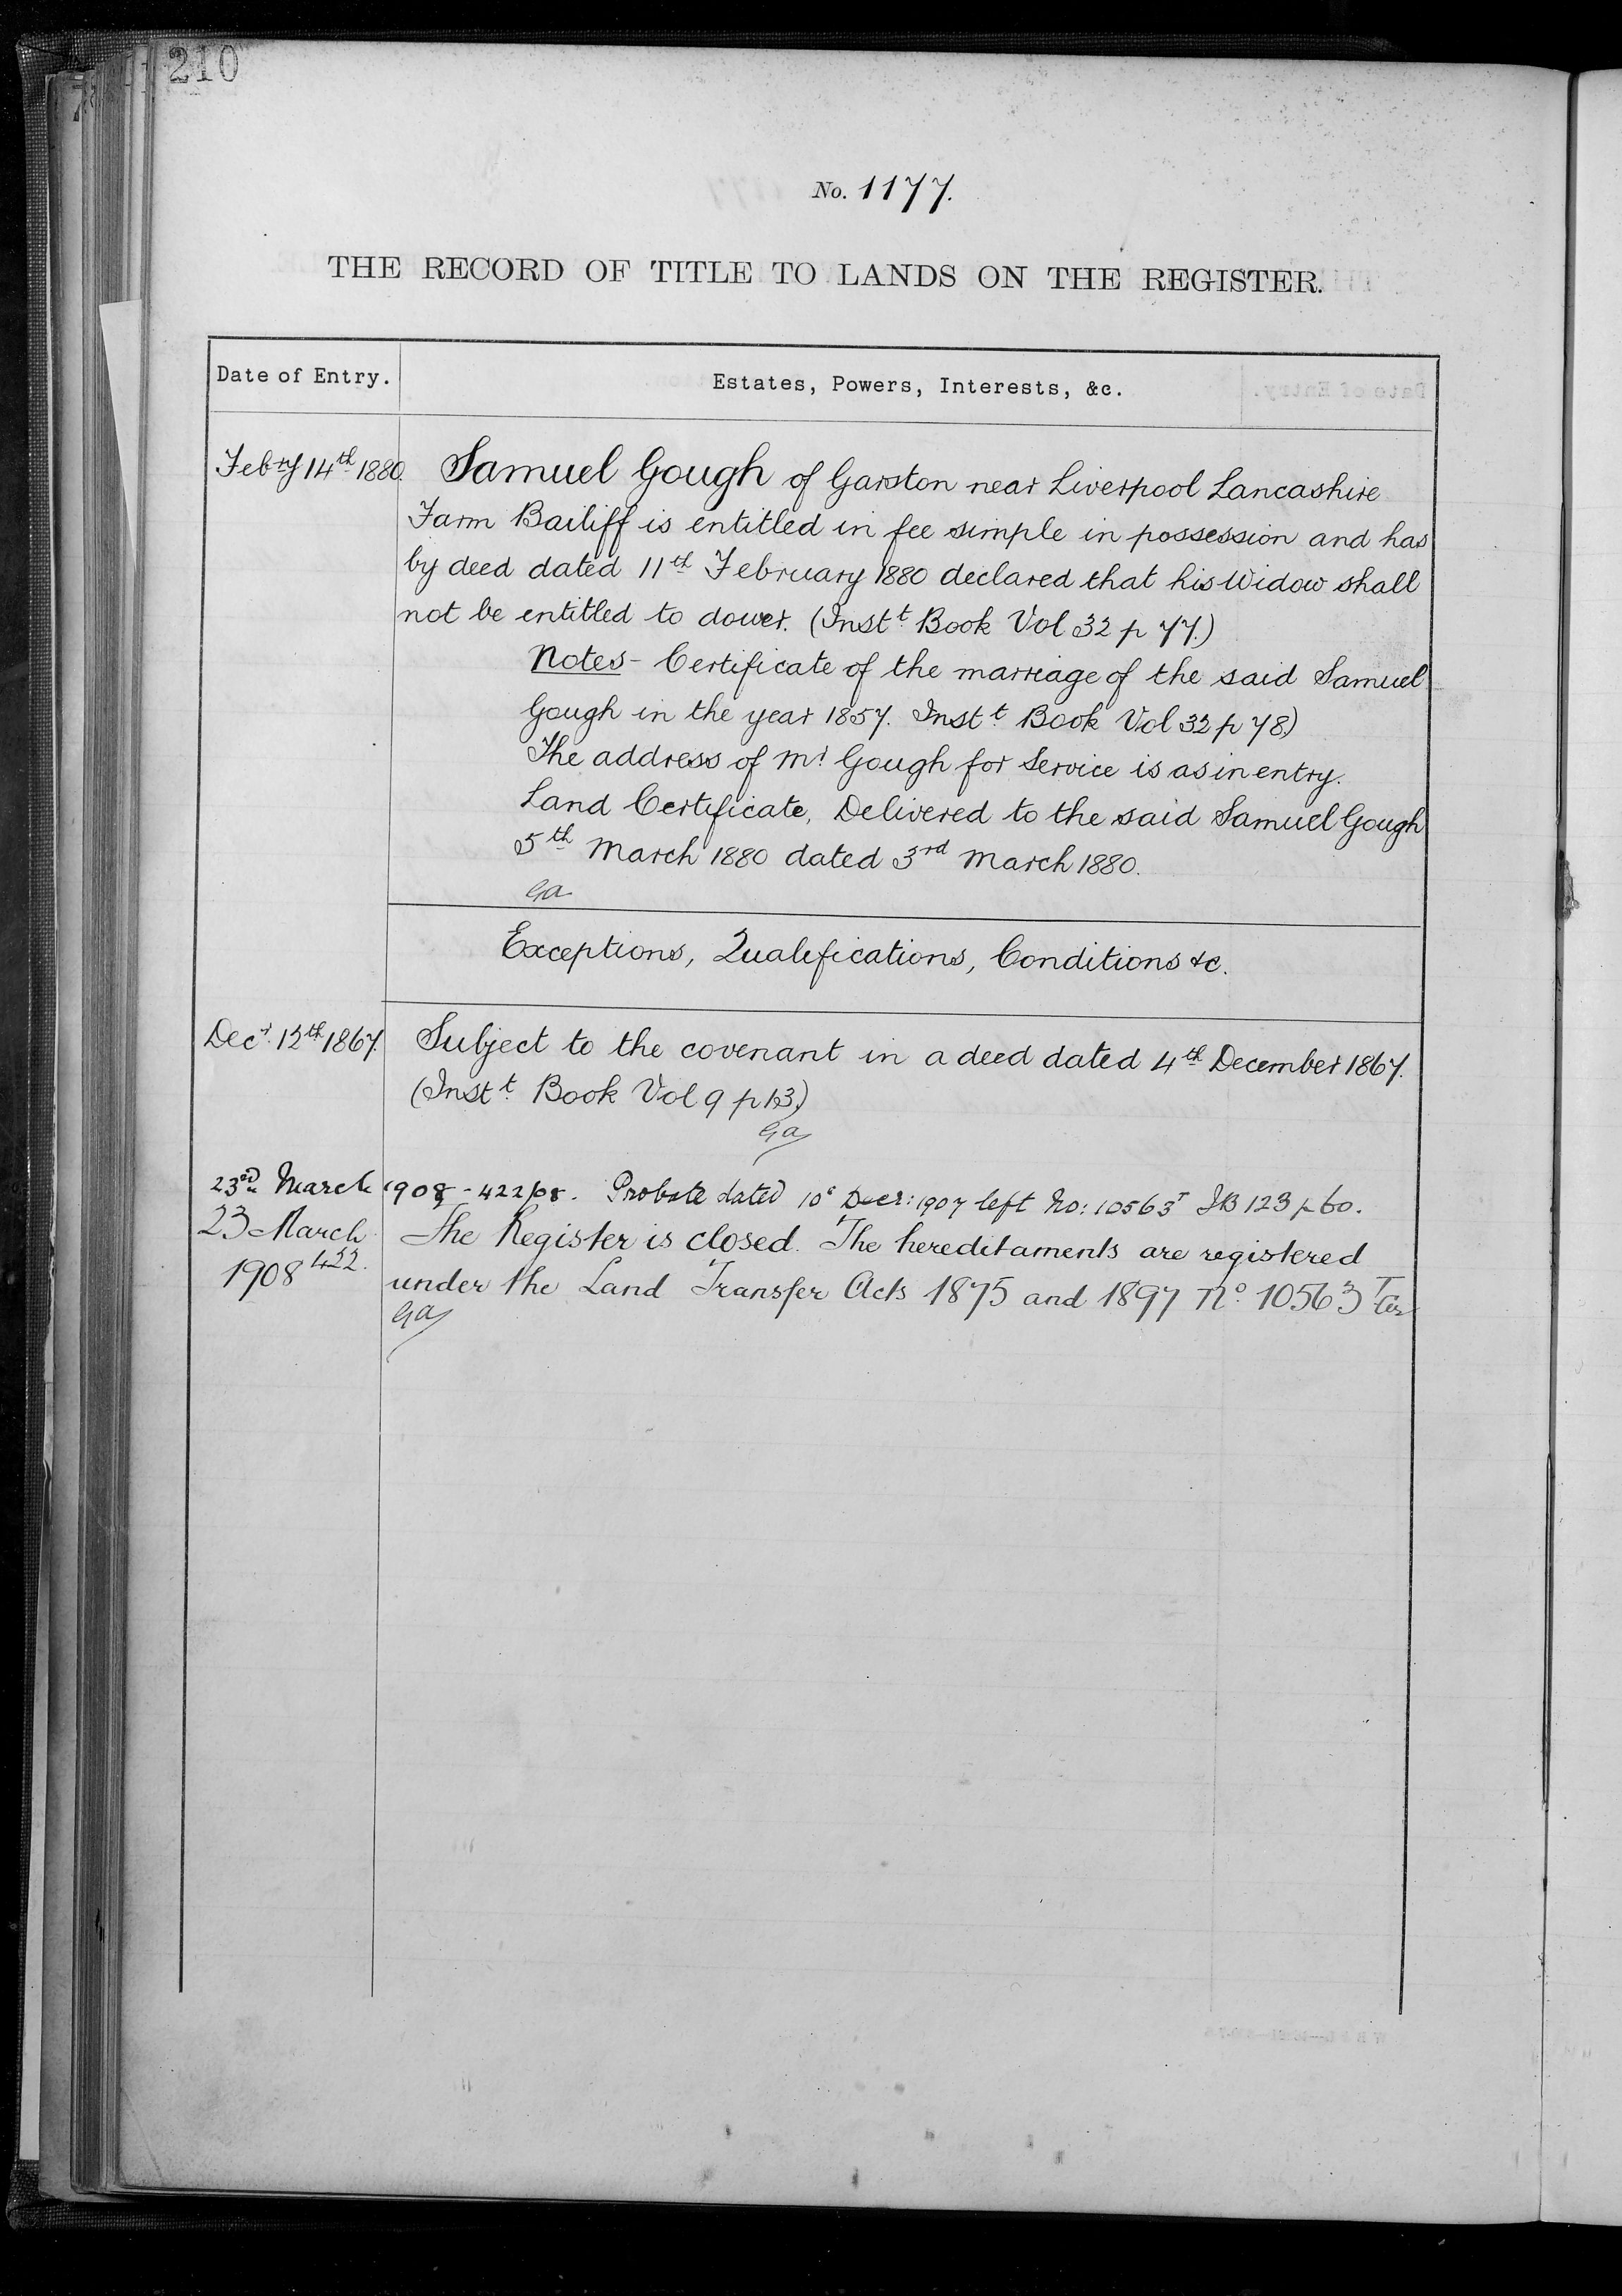 210
No. 1177.
THE RECORD OF TITLE TO LANDS ON THE REGISTER.
Date of Entry.
Estates, Powers, Interests, &c.
Febry 14th 1880. Samuel Gough of Garston near Liverpool Lancashire
Farm Bailiff is entitled in fee simple in possession and has
by deed dated 11th February 1880 declared that his Widow shall
not be entitled to dower. (Instt Book Vol 32 p 77.)
Notes - Certificate of the marriage of the said Samuel
Gough in the year 1857. Instt Book Vol 32 p 78)
The address of Mr Gough for Service is as in entry.
Land Certificate, Delivered to the said Samuel Gough
5th March 1880 dated 3rd March 1880.
Ga
Exceptions, Qualifications, Conditions &c.
Decr 12th 1867. Subject to the covenant in a deed dated 4th December 1867.
(Instt Book Vol 9 p 13)
Ga
23rd March 1908 - 422/08. Probate dated 10th Decr: 1907 left No: 10563T IB 123 p 60.
23 March The Register is closed. The hereditaments are registered
1908 422. under the Land Transfer Acts 1875 and 1897 No 10563 T
Ga